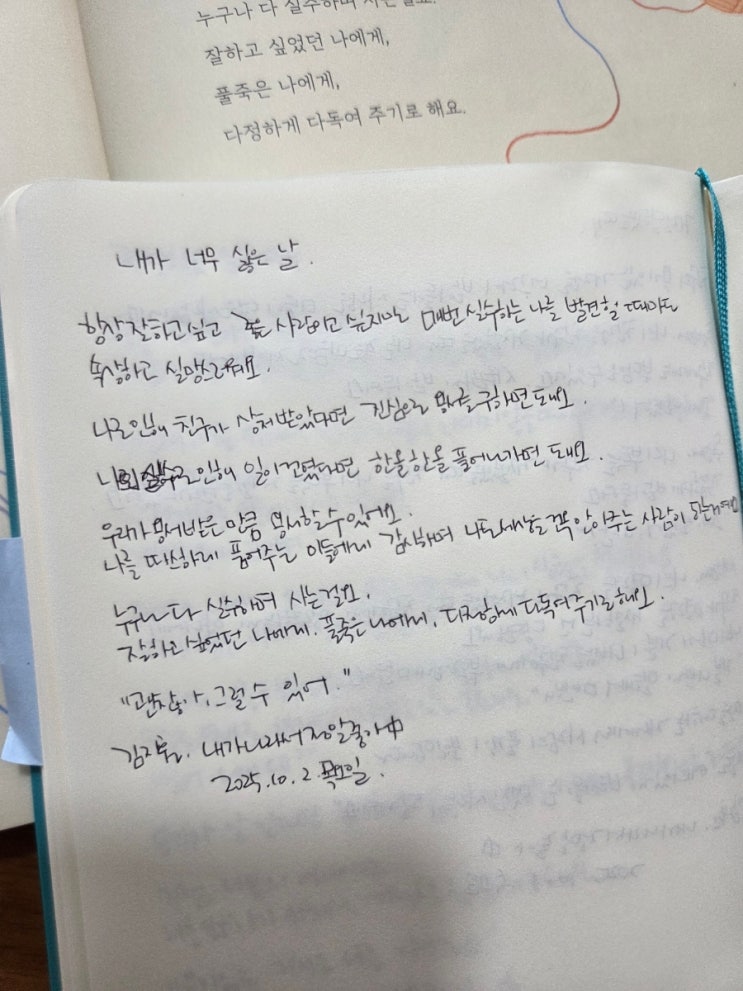 누구나 다 실수하며 사는걸요.
잘하고 싶었던 나에게,
풀죽은 나에게,
다정하게 다독여 주기로 해요.
내가 너무 싫은 날.
항상 잘하고 싶고 좋은 사람이고 싶지만 매번 실수하는 나를 발견할 때마다
속상하고 실망스러워요.
나로 인해 친구가 상처받았다면 진심으로 용서를 구하면 돼요.
나의 실수로 인해 일이 꼬였다면 한올한올 풀어나가면 돼요.
우리가 용서받은 만큼 용서할 수 있어요.
나를 따스하게 품어주는 이들에게 감사하며 나도 세상을 꼭 안아주는 사람이 되는거예요
누구나 다 실수하며 사는걸요.
잘하고 싶었던 나에게. 풀죽은 나에게, 다정하게 다독여주기로 해요.
"괜찮아, 그럴 수 있어."
내가 나라서 정말 좋아
2025.10.2 목요일.